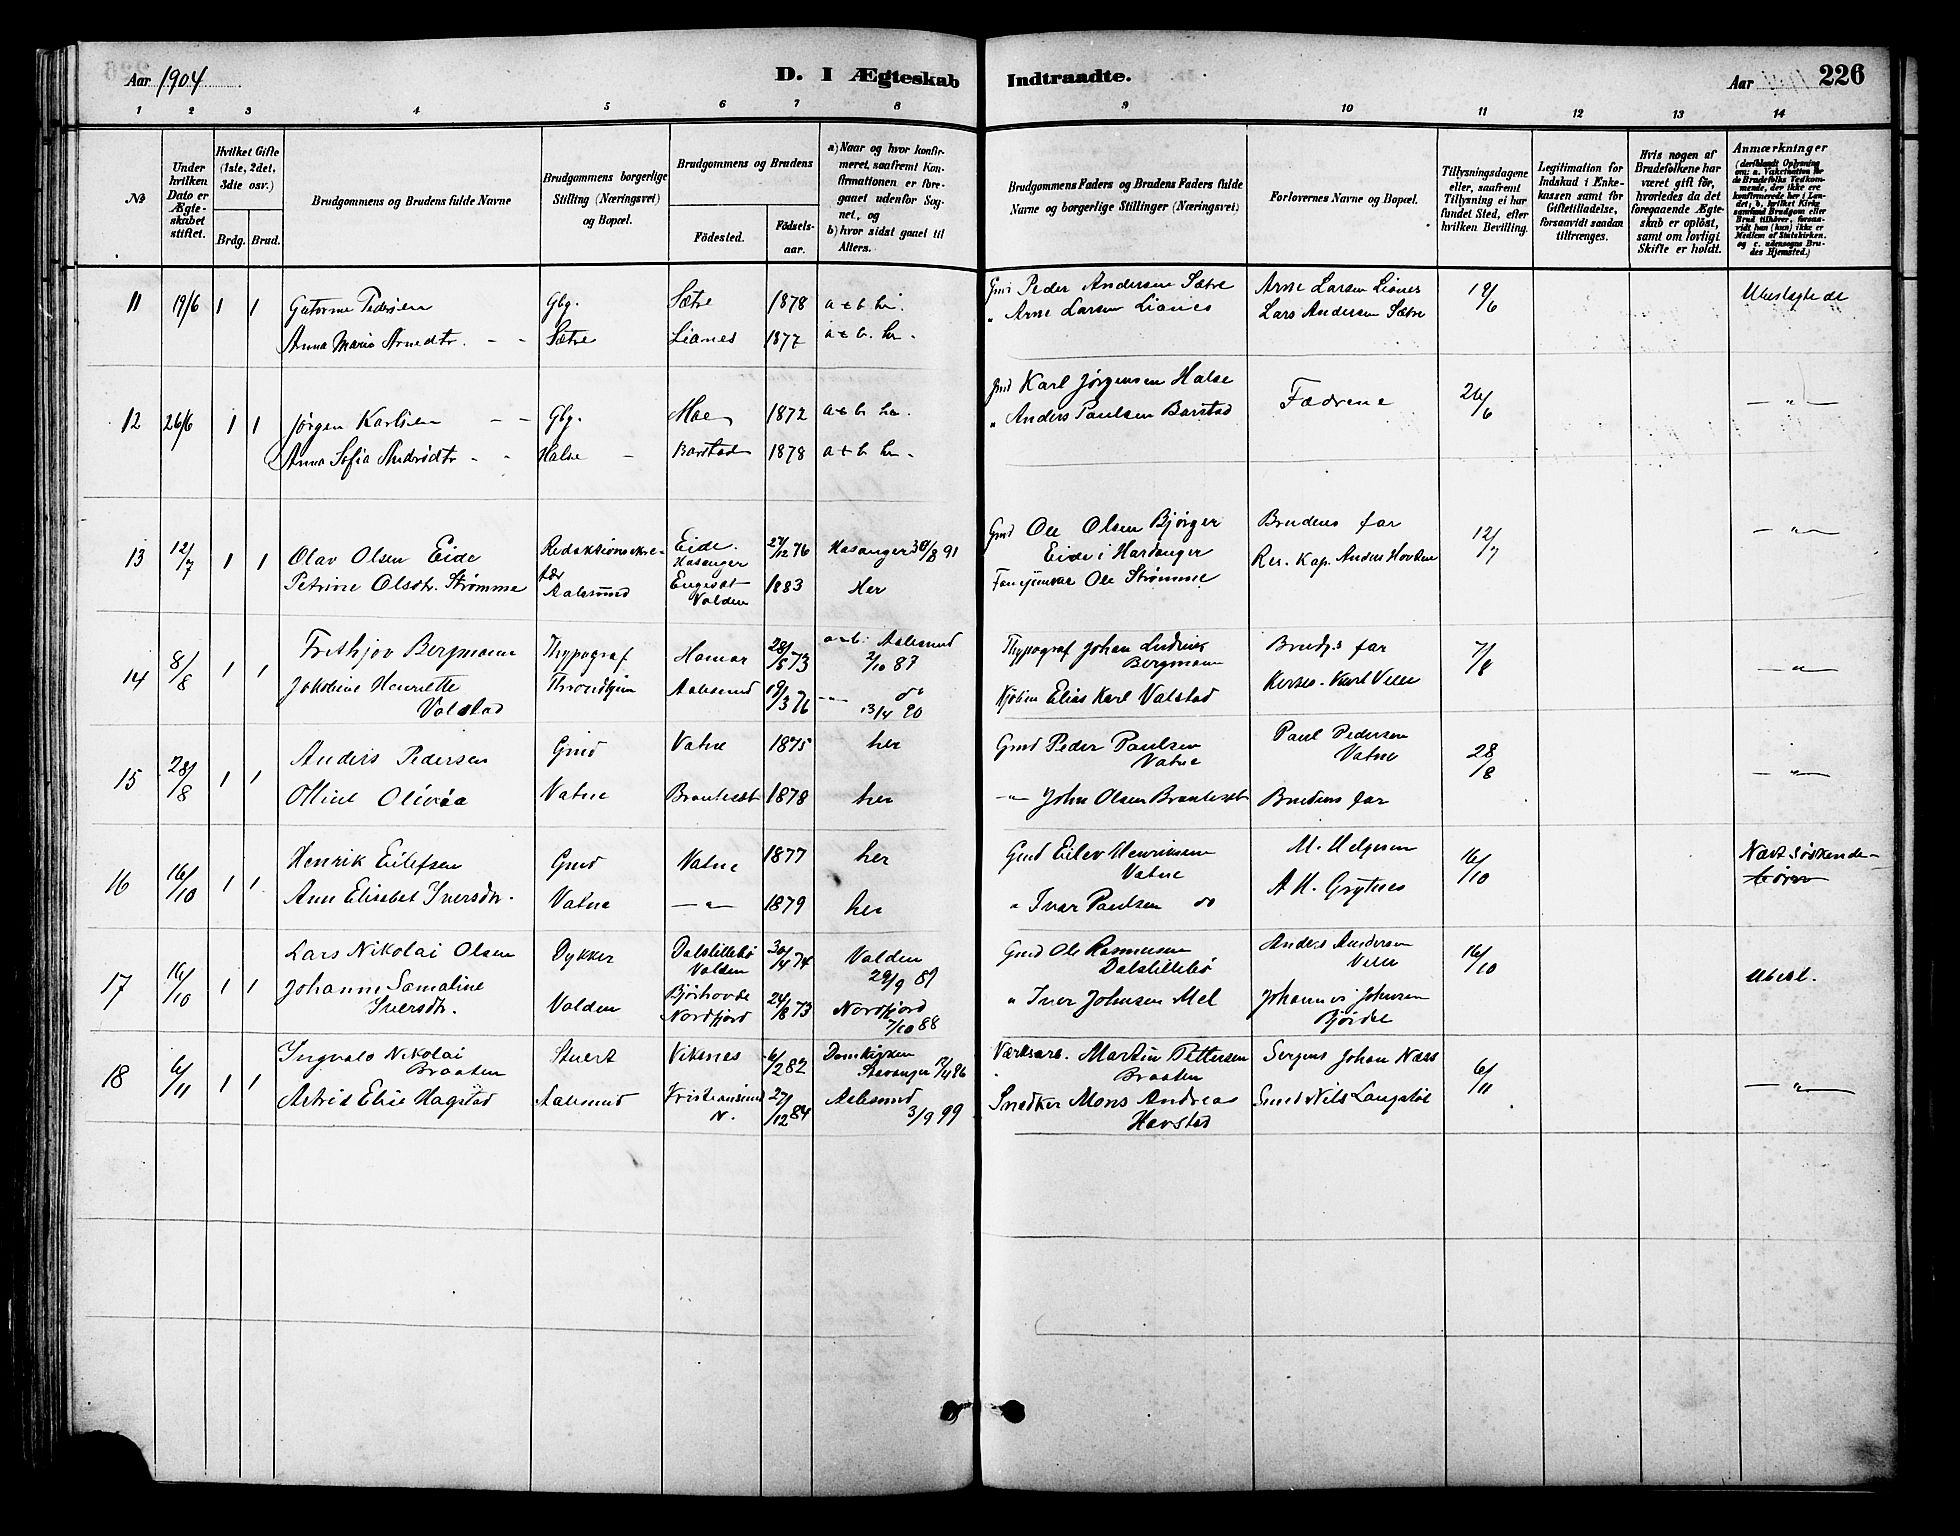 Aar 1904
D. I Ægteskab Indtraadte.
Aar
226
1 2 3 4 5 6 7 8 9 10 11 12 13 14
No
Under hvilken Dato er Ægteskabet stiftet.
Hvilket Gifte (1ste, 2det, 3die osv.)
Brdg. Brud.
Brudgommens og Brudens fulde Navne
Brudgommens borgerlige Stilling (Næringsvei) og Bopæl.
Brudgommens og Brudens
Födested.
Födselsaar.
a) Naar og hvor konfirmeret, saafremt Konfirmationen er foregaaet udenfor Sognet, og
b) hvor sidst gaaet til Alters.
Brudgommens Faders og Brudens Faders fulde Navne og borgerlige Stillinger (Næringsvei)
Forlovernes Navne og Bopæl.
Tillysningsdagene eller, saafremt Tillysning ei har fundet Sted, efter hvilken Bevilling.
Legitimation for Indskud i Enkekassen samt for Giftetilladelse, forsaavidt saadan tiltrænges.
Hvis nogen af Brudefolkene har været gift för, hvorledes da det foregaaende Ægteskab er oplöst, samt om lovligt Skifte er holdt.
Anmærkninger
(deriblandt Oplysning om: a. Vakcination for de Brudefolks Vedkommende, der ikke ere konfirmerede her i Landet; b. hvilket Kirkesamfund Brudgom eller Brud tilhörer, forsaavidt han (hun) ikke er Medlem af Statskirken, og c. udensogns Brudes Hjemsted.)
11 19/6 1 1 Guttorm Pedersen Gbg. Sætre 1878 a + b her. Gmd Peder Andersen Sætre Arne Larsen Lianes 19/6 Ubeslægtede
Anna Marie Arnedtr. - - Sætre Lianes 1877 a + b. her. " Arne Larsen Lianes Lars Andersen Sætre
12 26/6 1 1 Jørgen Karlsen - - Gbg. Moe 1872 a + b her. Gmd Karl Jørgensen Halse Fædrene 26/6 — " —
Anna Sofia Andersdtr - - Halse - Barstad 1878 a + b her. " Anders Paulsen Barstad
13 12/7 1 1 Olav Olsen Eide Redaktionssekretær Eide. Hardanger 27/12 76 30/8 91 Gmd Ole Olsen Bjørger Eide i Hardanger Brudens far 12/7 — " —
Petrine Olsdtr. Strømme Aalesund Engeset Volden 1883 Her Ole Strømme Res. Kap. Anders Hovden
14 8/8 1 1 Frithjov Bergmann Thypograf Hamar 28/5 73 a + b: Aalesund 2/10 87 Thypograf Johan Ludvik Bergmann Brudg.s far 7/8 — " —
Jakobine Henriette Valstad Throndhjem Aalesund 19/3 76 - " - do 13/4 90 Kjøbm Elias Karl Valstad Karl Velle
15 28/8 1 1 Anders Pedersen Gmd Vatne 1875 her Gmd Peder Paulsen Vatne Paul Pedersen Vatne 28/8 — " —
Olivia Vatne 1878 her - " - John Olsen Brudens far
16 16/10 1 1 Henrik Eilefsen Gmd Vatne 1877 her Gmd Eilev Henriksen Vatne M. Helgesen 16/10 Nært søskende-
Ane Elisebet Iversdtr. Vatne — " — 1879 her " Ivar Paulsen do A. H. Grytnes
17 16/10 1 1 Lars Nikolai Olsen Dykker Dalslillebø Volden 30/4 74 Volden 29/9 89 Gmd Ole Rasmusen Dalslillebø Anders Andersen Velle 16/10 Ubesl.
Johanne Samaline Iversdtr. Volden Nordfjord 24/8 73 Nordfjord 7/10 88 " Iver Johnsen Mel Johannes Johnsen Bjørdal
18 6/11 1 1 Ingvald Nikolai Braaten Stuert Viksnes 6/2 82 Domkirken Stavanger Værksarb. Martin Pettersen Braaten Johan Næss 6/11 — " —
Astrid Elise Hagstad Aalesund Kristiansund N. 27/12 84 Aalesund 3/9 99 Snedker Mons Andreas Havstad Smed Nils